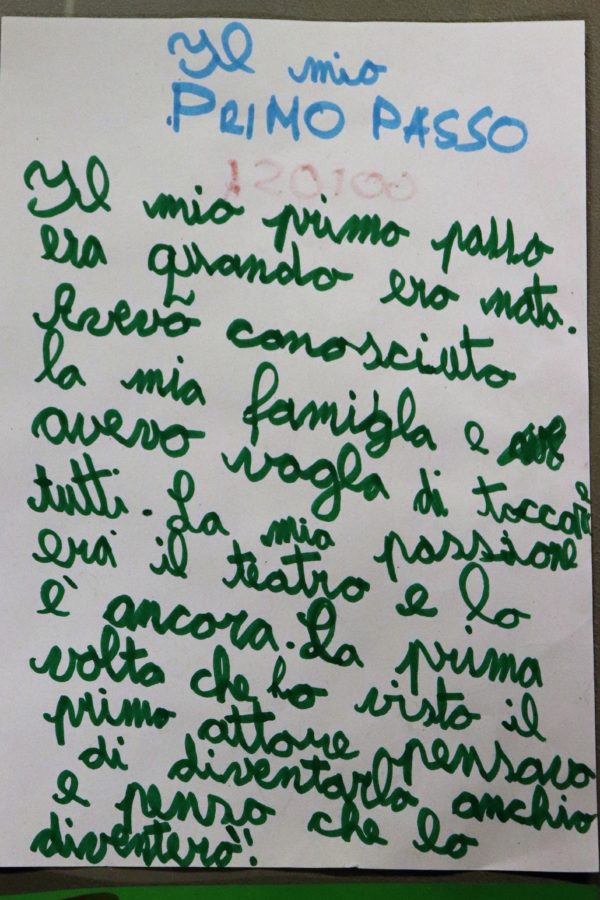 Il mio
PRIMO PASSO
120100
Il mio primo passo
era quando ero nata.
Avevo conosciuto
la mia famigla e
avevo vogla di toccare
tutti. La mia passione
era il teatro e lo
è ancora. La prima
volta che ho visto il
primo attore pensavo
di diventarlo anchio
e penso che lo
diventerò!